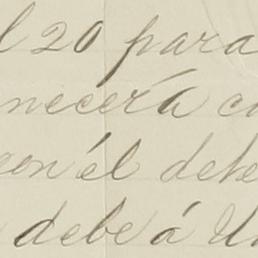 l 20 para
necerá co
con él debe
debe á U